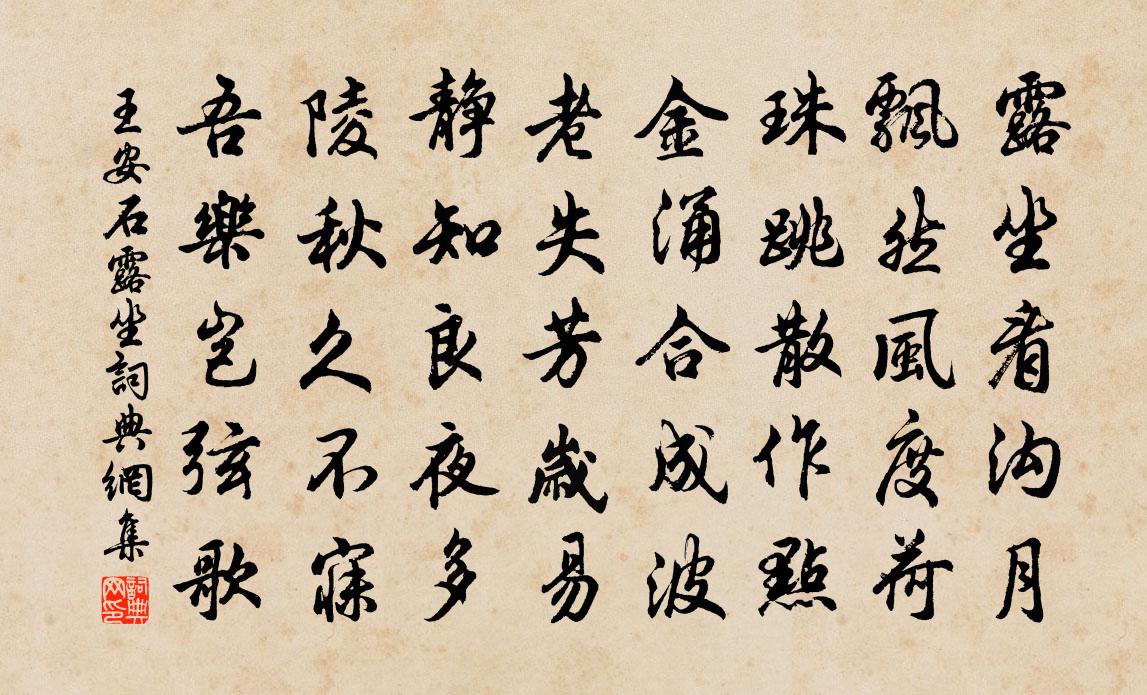 露坐看沟月
飘然風度荷
珠跳散作點
金涌合成波
老失芳歳易
静知良夜多
陵秋久不寐
吾樂岂弦歌
王安石露坐詞典網集
詞典网印